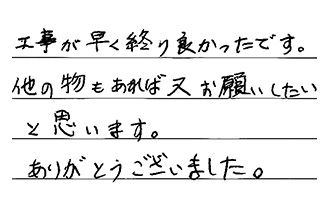 工事が早く終り良かったです。
他の物もあれば又お願いしたい
と思います。
ありがとうございました。